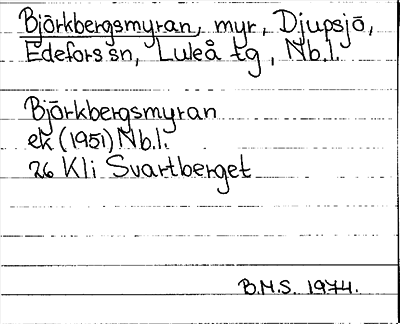 Björkbergsmyran, myr, Djupsjö,
Edefors sn, Luleå tg, Nb.l.
Björkbergsmyran
ek (1951) Nb.l.
26 Kli Svartberget
B.M.S. 1974.